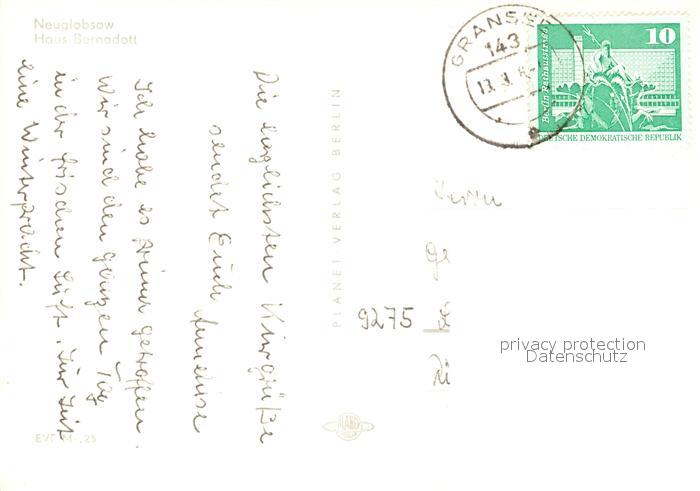 Neuglobsow
Haus Bernadott
Die herzlichsten Kurgrüße
sendet Euch
Ich habe es prima getroffen.
Wir sind den ganzen Tag
in der frischen Luft. Zur Zeit
eine Winterpracht.
EVP M -,25
PLANET VERLAG BERLIN
PLANET
GRANSEE
143
13.
Berlin, Rathausstraße
10
DEUTSCHE DEMOKRATISCHE REPUBLIK
Herrn
Ge
9275 L
Zi
privacy protection
Datenschutz